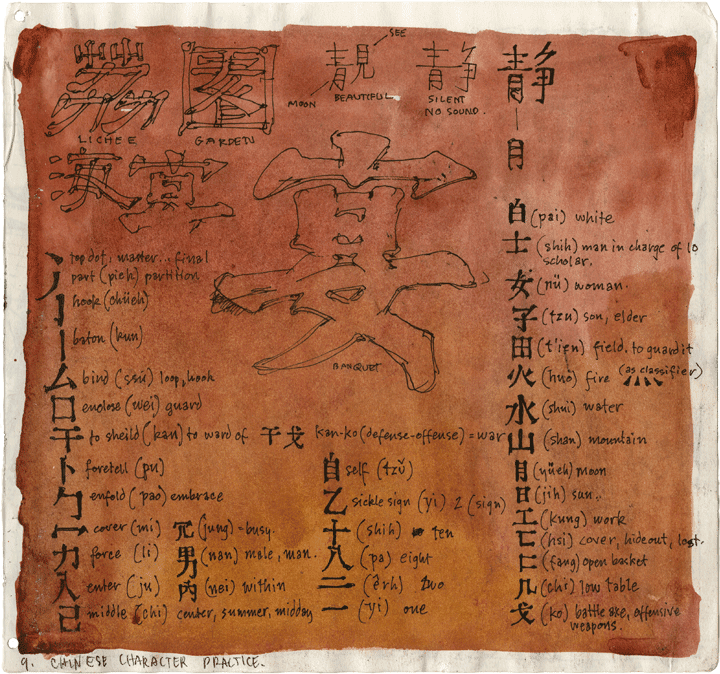 SEE
MOON
BEAUTIFUL
SILENT
NO SOUND.
靚
静
静
月
LICHEE
GARDEN
BANQUET
top dot, matter... final
part (pieh) partition
hook (chüeh)
baton (kun)
厶 bind (ssu) loop, hook
囗 enclose (wei) guard
干 to sheild (kan) to ward of 干戈 kan-ko (defense-offense) = war
卜 foretell (pu)
勹 enfold (pao) embrace
冖 cover (mi) 冗 (jung) = busy.
力 force (li) 男 (nan) male, man.
入 enter (ju) 內 (nei) within
己 middle (chi) center, summer, midday
自 self (tzŭ)
乙 sickle sign (yi) 2 (sign)
十 (shih) ten
八 (pa) eight
二 (êrh) two
一 (yi) one
白 (pai) white
士 (shih) man in charge of 10
scholar.
女 (nü) woman.
子 (tzu) son, elder
田 (t'ien) field. to guard it
火 (huo) fire 灬 (as classifier)
水 (shui) water
山 (shan) mountain
月 (yüeh) moon
日 (jih) sun.
工 (kung) work
匸 (hsi) cover, hideout, lost.
匚 (fang) open basket
几 (chi) low table
戈 (ko) battle axe, offensive
weapons.
9. CHINESE CHARACTER PRACTICE.